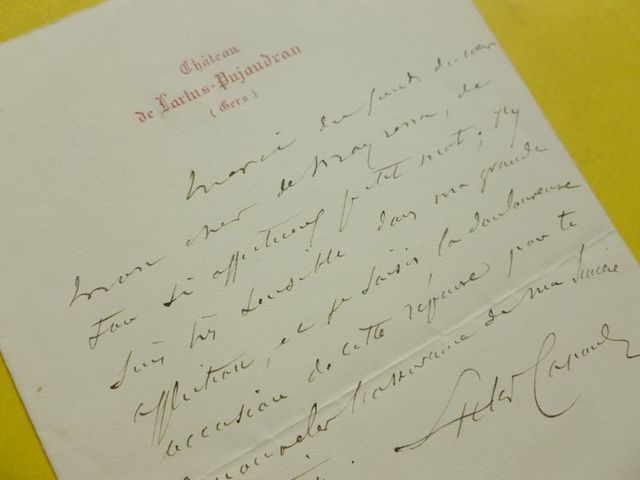 Château
de Lartus-Pujaudran
(Gers)
Merci du fond du cœur
mon cher de Mayrena, de
ton si affectueux petit mot; j'y
suis très sensible dans ma grande
affliction, et je saisis la douloureuse
occasion de cette réponse pour te
renouveler l'assurance de ma sincère
Victor Capoul